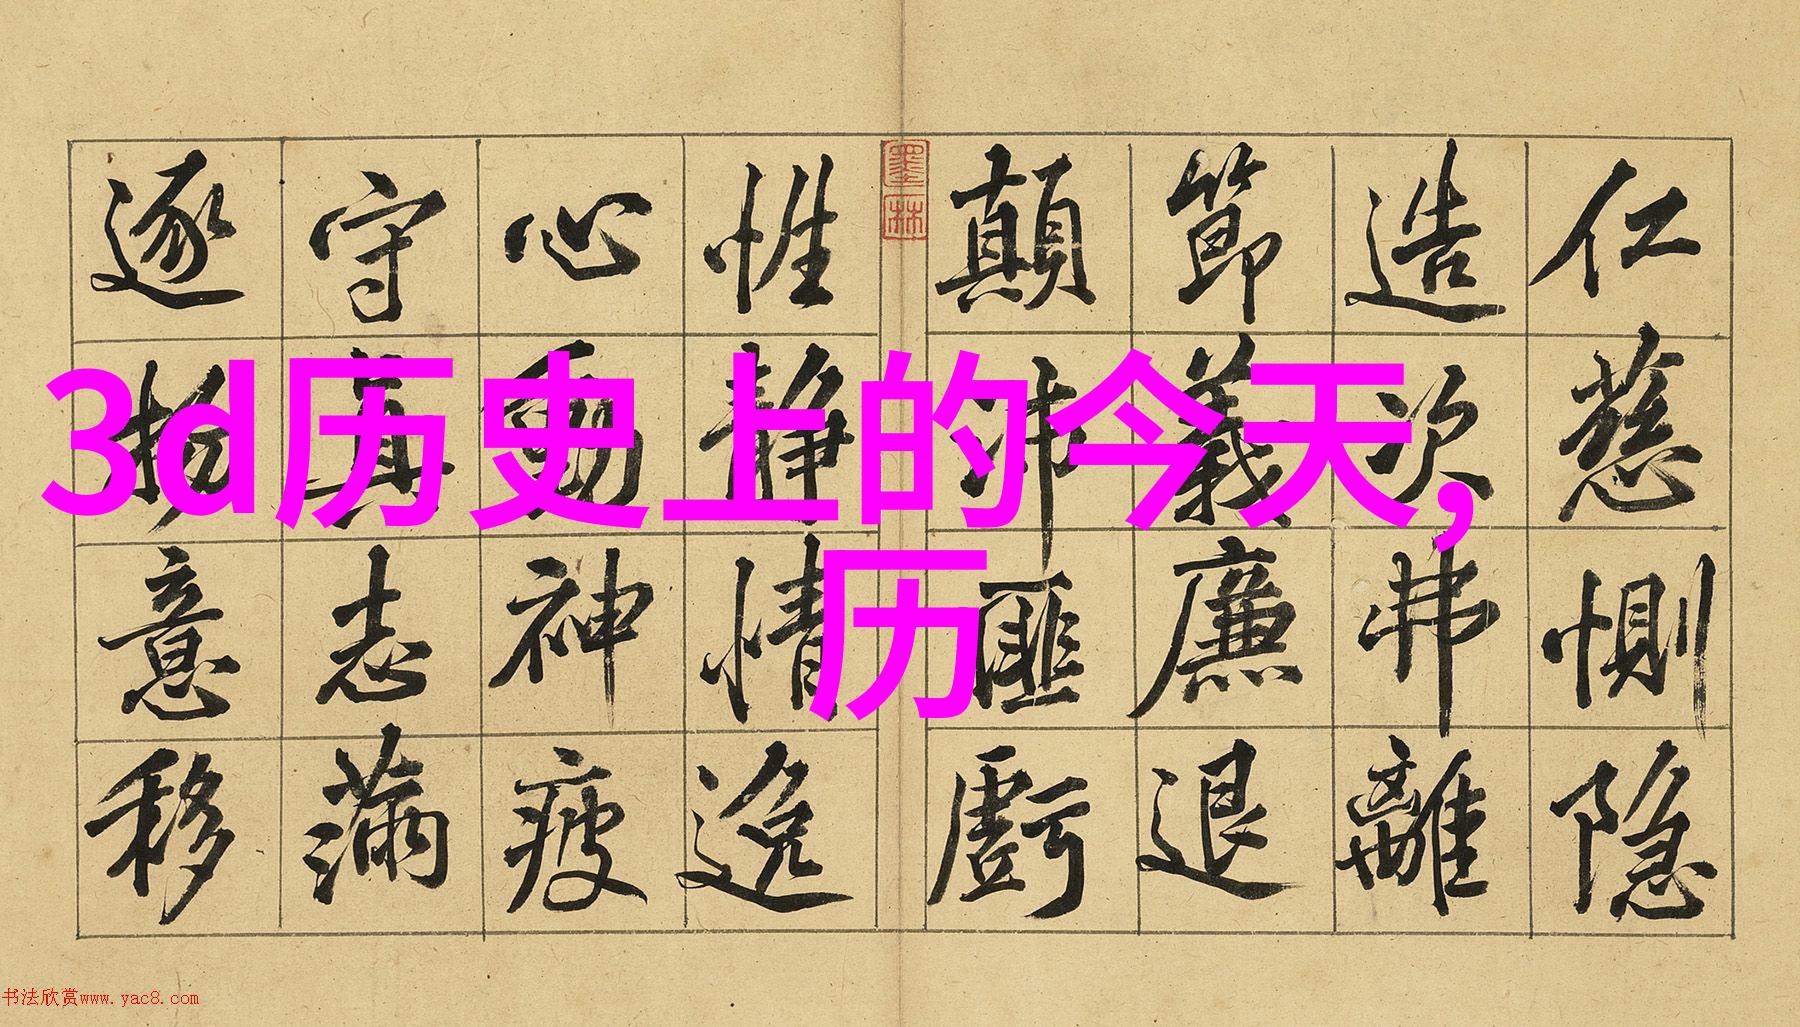 3d历史上的今天,
历
仁慈惻隐
造次弗離
節義廉退
顛沛匪虧
墨林
性静情逸
心動神疲
守真志滿
逐物意移
书法欣赏www.yac8.com